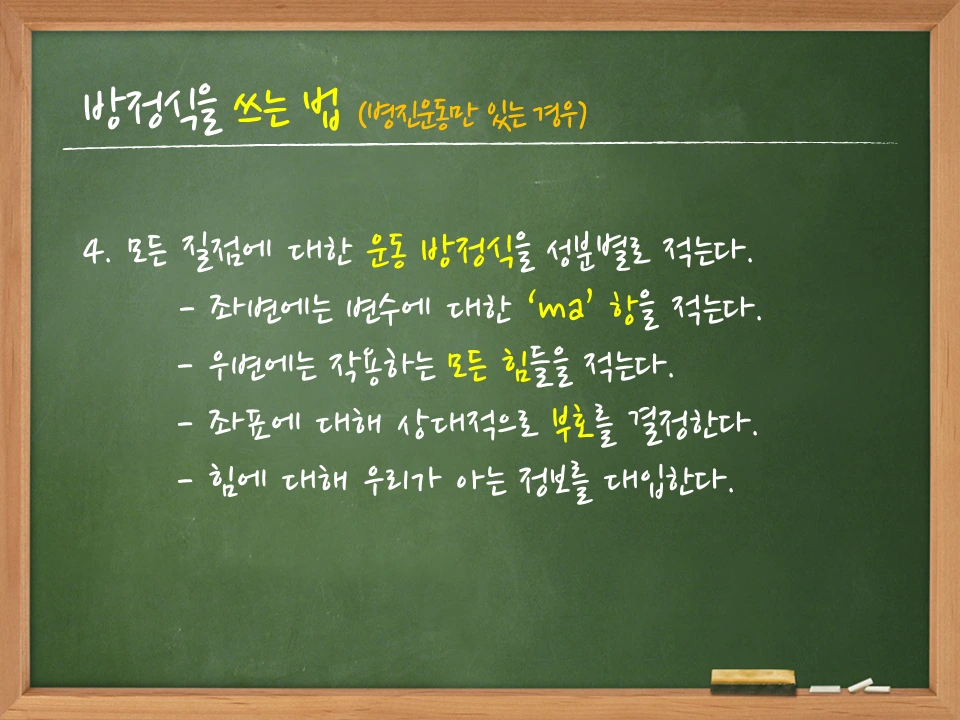 방정식을 쓰는 법 (병진운동만 있는 경우)
4. 모든 질점에 대한 운동 방정식을 성분별로 적는다.
- 좌변에는 변수에 대한 ‘ma’ 항을 적는다.
- 우변에는 작용하는 모든 힘들을 적는다.
- 좌표에 대해 상대적으로 부호를 결정한다.
- 힘에 대해 우리가 아는 정보를 대입한다.